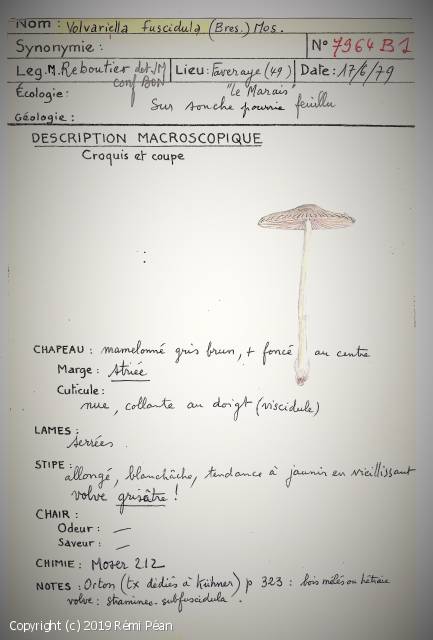 Nom : Volvariella fuscidula (Bres.) Mos.
Synonymie : N° 7964 B1
Leg. M. Reboutier det JM Lieu: Faveraye (49) Date: 17/6/79
conf BON "Le Marais"
Écologie: Sur souche pourrie feuillu
Géologie :
DESCRIPTION MACROSCOPIQUE
Croquis et coupe
CHAPEAU : mamelonné gris brun, + foncé au centre
Marge : striée
Cuticule :
nue, collante au doigt (viscidule)
LAMES :
serrées
STIPE :
allongé, blanchâche, tendance à jaunir en vieillissant
volve grisâtre !
CHAIR :
Odeur : —
Saveur : —
CHIMIE : Moser 212
NOTES : Orton (tx dédiés à Kühner) p 323 : bois mêlés ou hêtraie
volve : straminea - subfuscidula .
Copyright (c) 2019 Rémi Péan